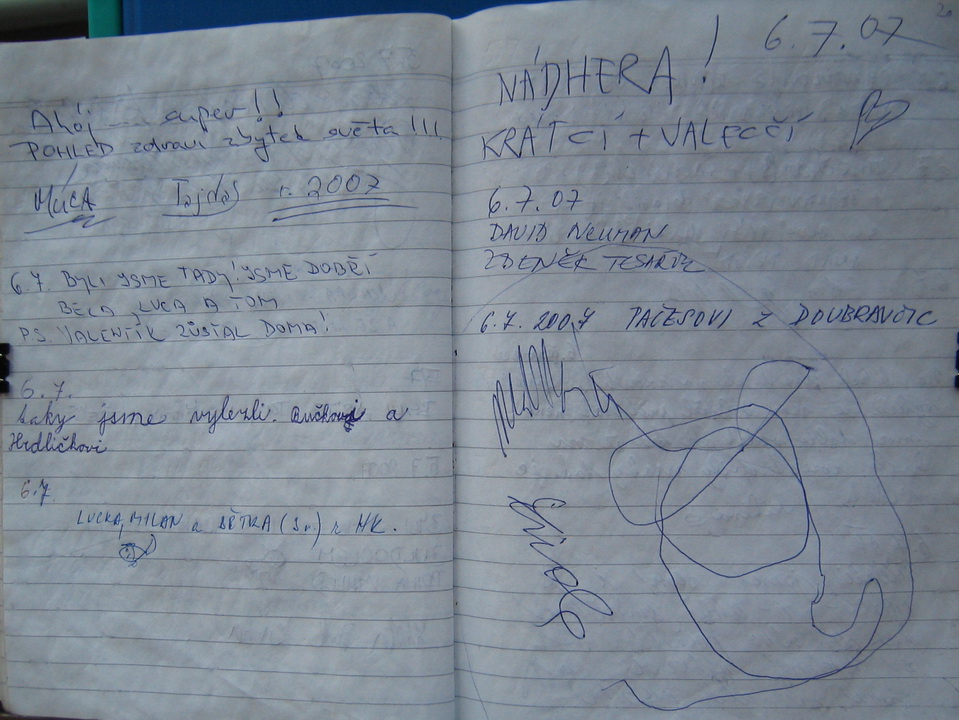 Ahoj super!!
POHLED zdraví zbytek světa !!!
MUCA Tajdas r. 2007
6.7. BYLI JSME TADY! JSME DOBŘÍ
BĚĎA, LUCA A TOM
P.S. VALENTÝK ZŮSTAL DOMA!
6.7.
taky jsme vylezli. a
Hrdličkovi
6.7.
LUCKA, MILAN a (Sr.) z HK.
6.7.07
NÁDHERA!
KRÁTCÍ + VALEČČÍ
6.7.07
DAVID NEUMAN
ZDENĚK TESAŘÍK
6.7.2007 PAČESOVI Z DOUBRAVČIC